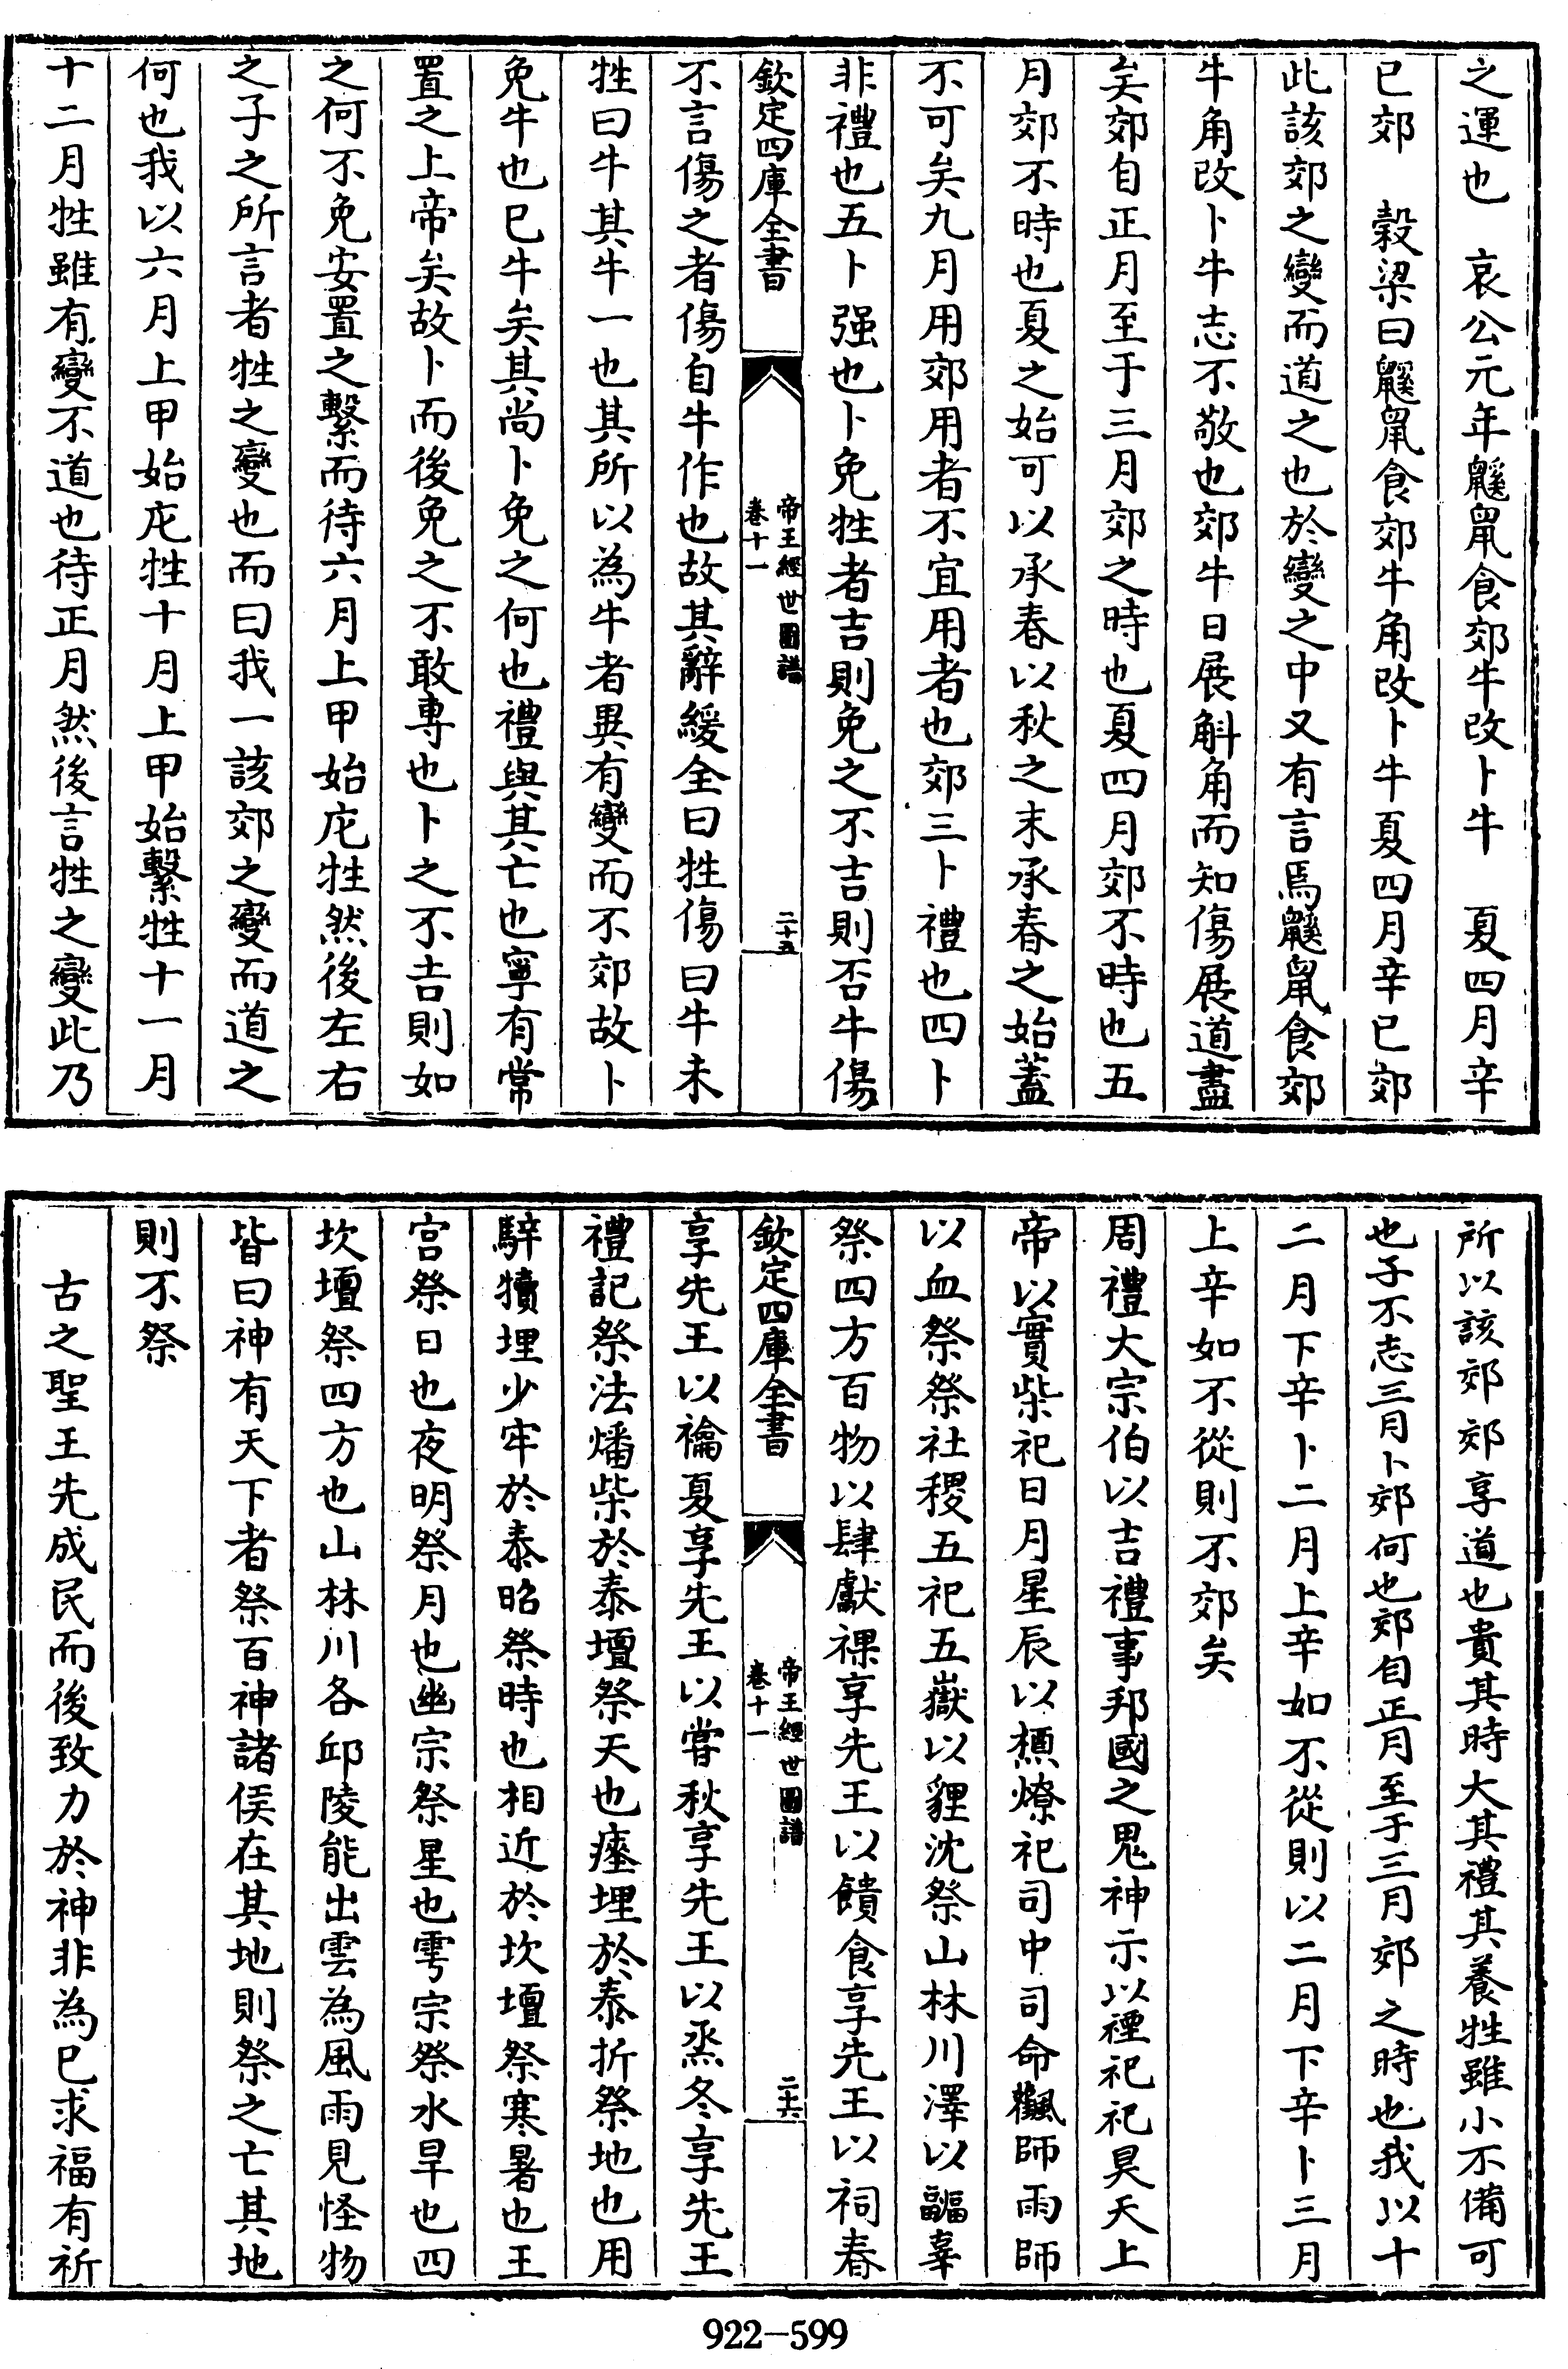 之運也　哀公元年鼷鼠食郊牛改卜牛　夏四月辛
巳郊　榖梁曰鼷鼠食郊牛角改卜牛夏四月辛巳郊
此該郊之變而道之也於變之中又有言焉鼷鼠食郊
牛角改卜牛志不敬也郊牛日展斛角而知傷展道盡
矣郊自正月至于三月郊之時也夏四月郊不時也五
月郊不時也夏之始可以承春以秋之末承春之始蓋
不可矣九月用郊用者不宜用者也郊三卜禮也四卜
非禮也五卜强也卜免牲者吉則免之不吉則否牛傷
欽定四庫全書
帝王經世圖譜
卷十一
二十五
不言傷之者傷自牛作也故其辭緩全曰牲傷曰牛未
牲曰牛其牛一也其所以為牛者異有變而不郊故卜
免牛也已牛矣其尚卜免之何也禮與其亡也寧有常
置之上帝矣故卜而後免之不敢專也卜之不吉則如
之何不免安置之繫而待六月上甲始庀牲然後左右
之子之所言者牲之變也而曰我一該郊之變而道之
何也我以六月上甲始庀牲十月上甲始繫牲十一月
十二月牲雖有變不道也待正月然後言牲之變此乃
所以該郊郊享道也貴其時大其禮其養牲雖小不備可
也子不志三月卜郊何也郊自正月至于三月郊之時也我以十
二月下辛卜二月上辛如不從則以二月下辛卜三月
上辛如不從則不郊矣
周禮大宗伯以吉禮事邦國之鬼神示以禋祀祀昊天上
帝以實柴祀日月星辰以槱燎祀司中司命飌師雨師
以血祭祭社稷五祀五嶽以貍沈祭山林川澤以疈辜
祭四方百物以肆獻祼享先王以饋食享先王以祠春
欽定四庫全書
帝王經世圖譜
卷十一
二十六
享先王以禴夏享先王以嘗秋享先王以烝冬享先王
禮記祭法燔柴於泰壇祭天也瘞埋於泰折祭地也用
騂犢埋少牢於泰昭祭時也相近於坎壇祭寒暑也王
宫祭日也夜明祭月也幽宗祭星也雩宗祭水旱也四
坎壇祭四方也山林川各邱陵能出雲為風雨見怪物
皆曰神有天下者祭百神諸侯在其地則祭之亡其地
則不祭
古之聖王先成民而後致力於神非為已求福有祈
922-599